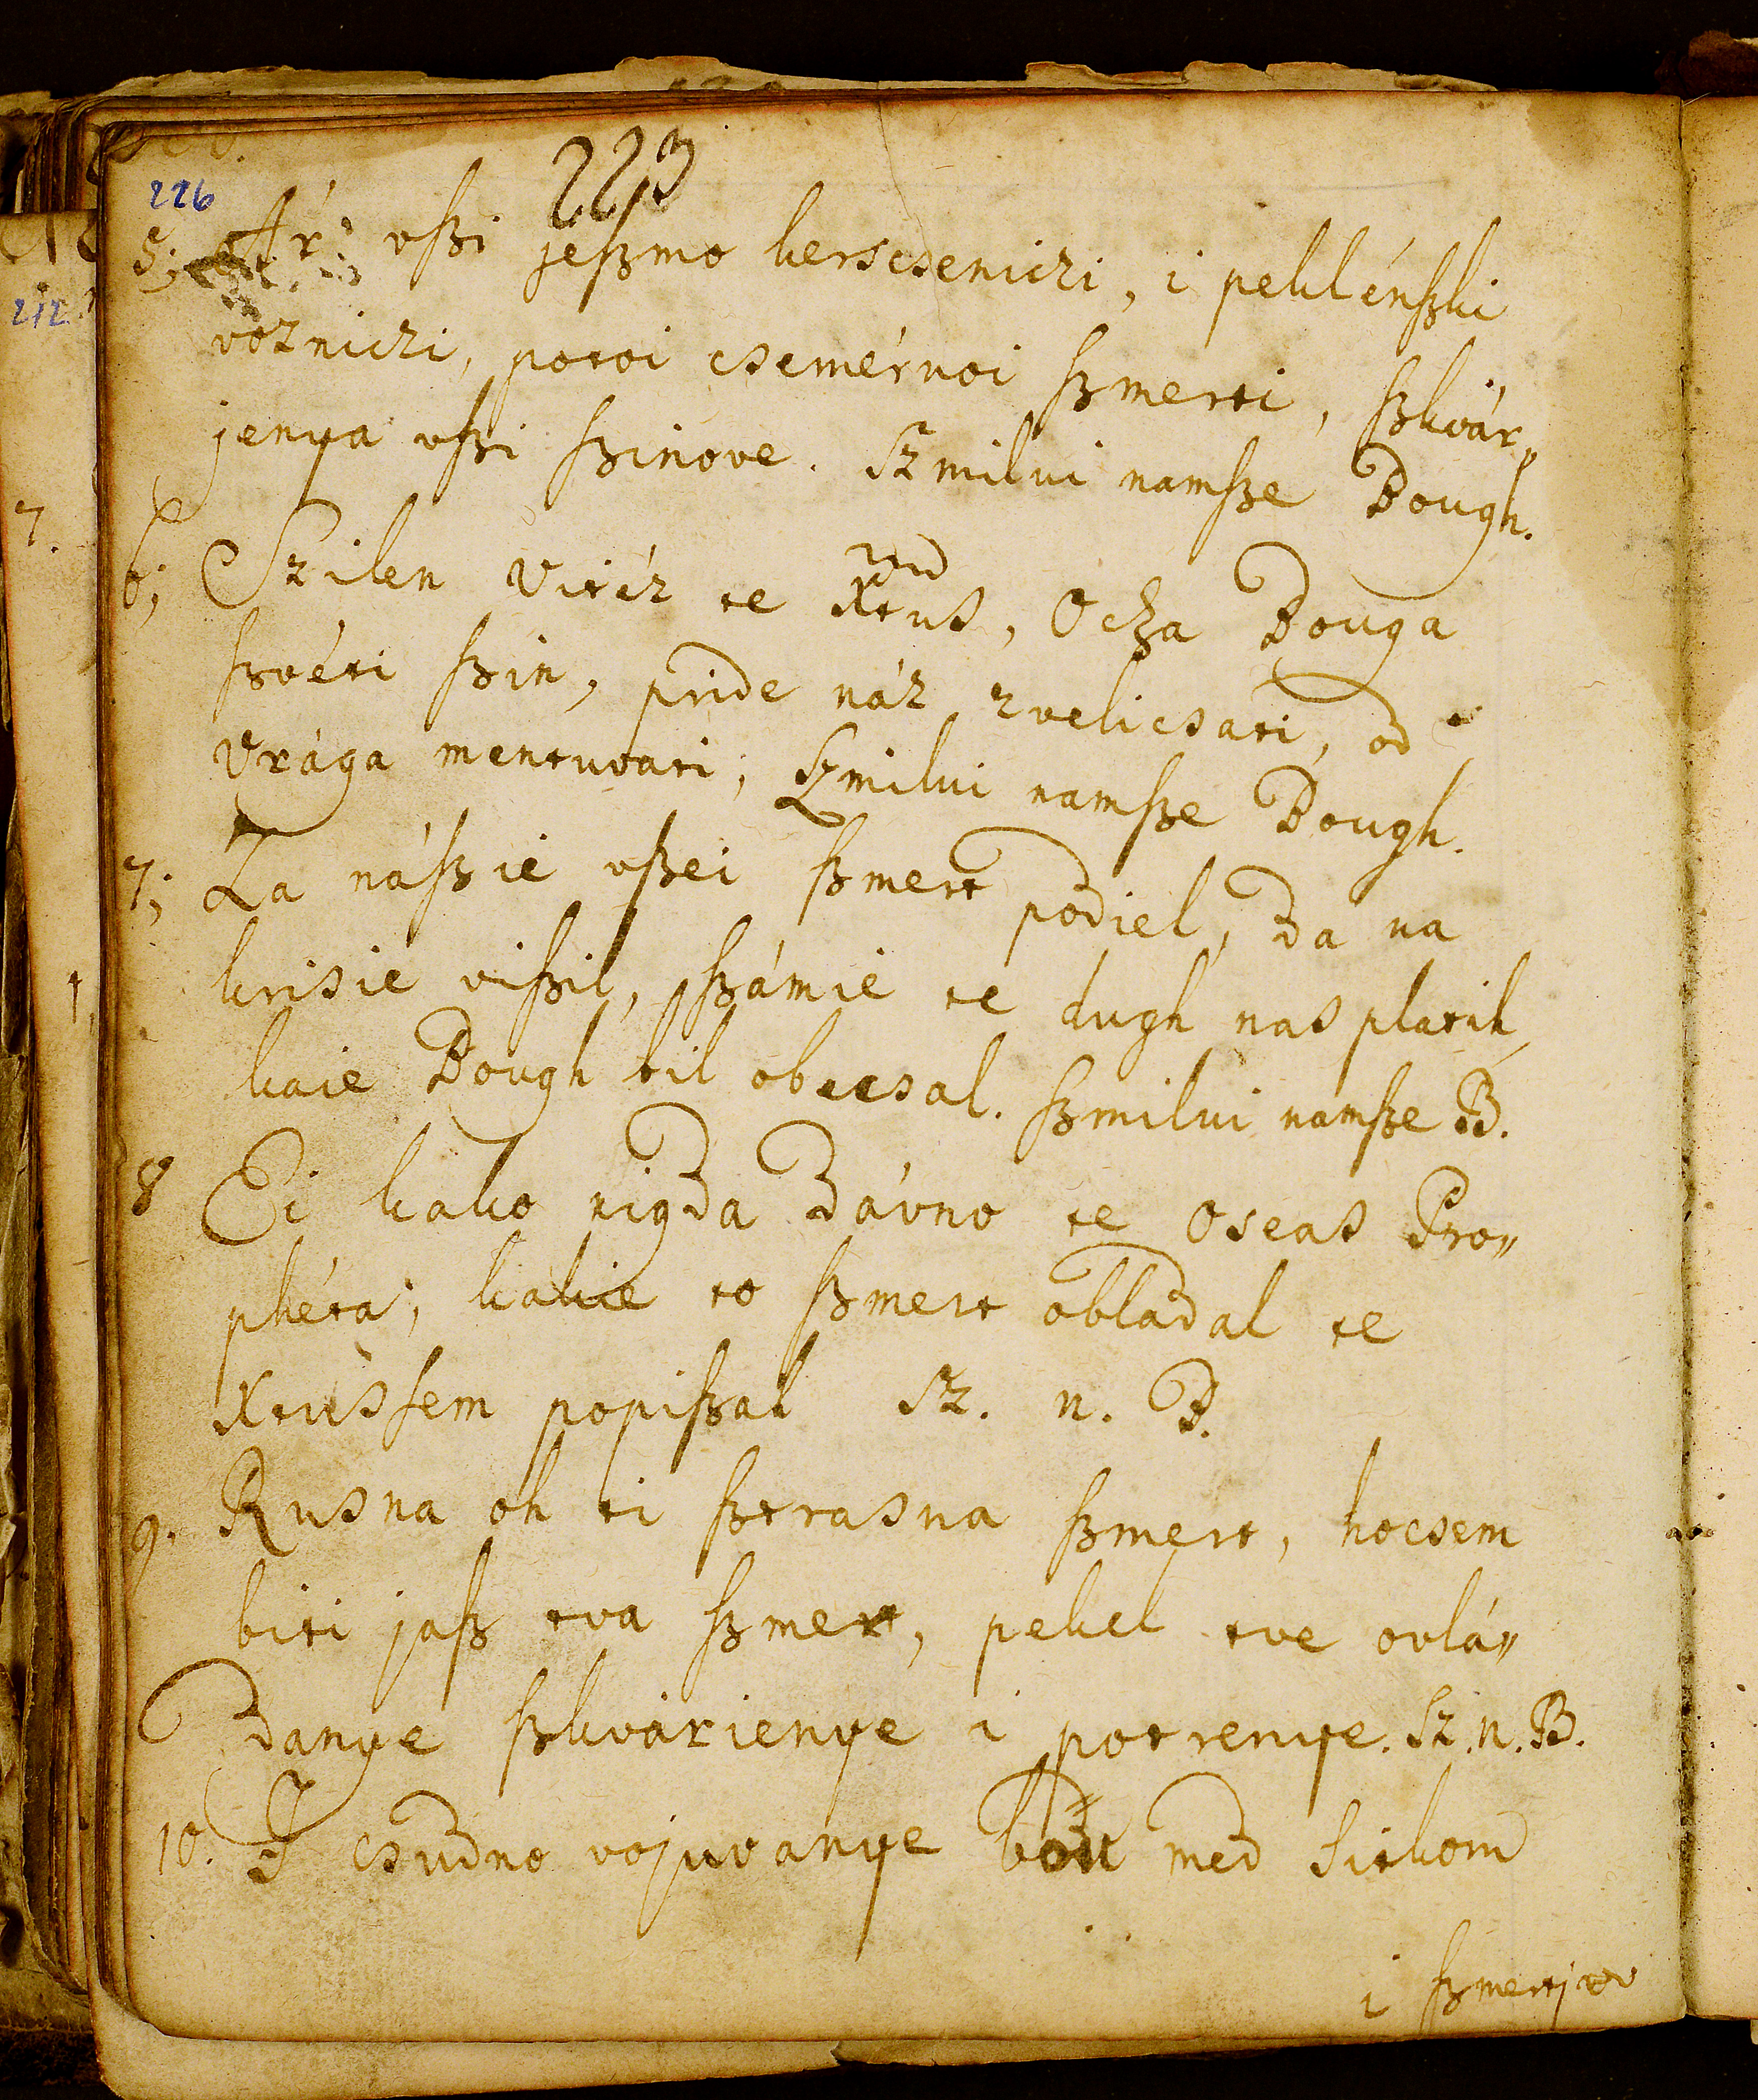 223
226
5; Ár: vſzi jeſzmo kerscseniczi, i peklénſzki
vozniczi, potoi csemérnoi ſzmerti, ſzkvár„
jenya vſzi ſzinove. Szmilui namſze Bough.
6; Szilen Vitéz te Xtus, Ocza Bouga
ſzvéti ſzin, pride náz zvelicsati, od
Vrága mentuvati; Szmilui namſze Bough.
7; Za náſz ie vſzei ſzmert podiel, da na
krisie viſzil, ſzámie te dugh nas platil,
kaie Bough bil obecsal. ſzmilui namſze B.
8 Ei kako nigda dávno te Oseas Pro„
phéta; kakie to ſzmert obladal te
Xtusſem popiſzal Sz. n. B.
9. Rusna oh ti ſztrasna ſzmert, hocsem
biti jaſz tva ſzmert, pekel tve ovlá„
danye ſzkvárienye i potrenye. Sz. n. B.
10. I csudno vojuvanye med sitkom
i ſzmertjov
212
7.